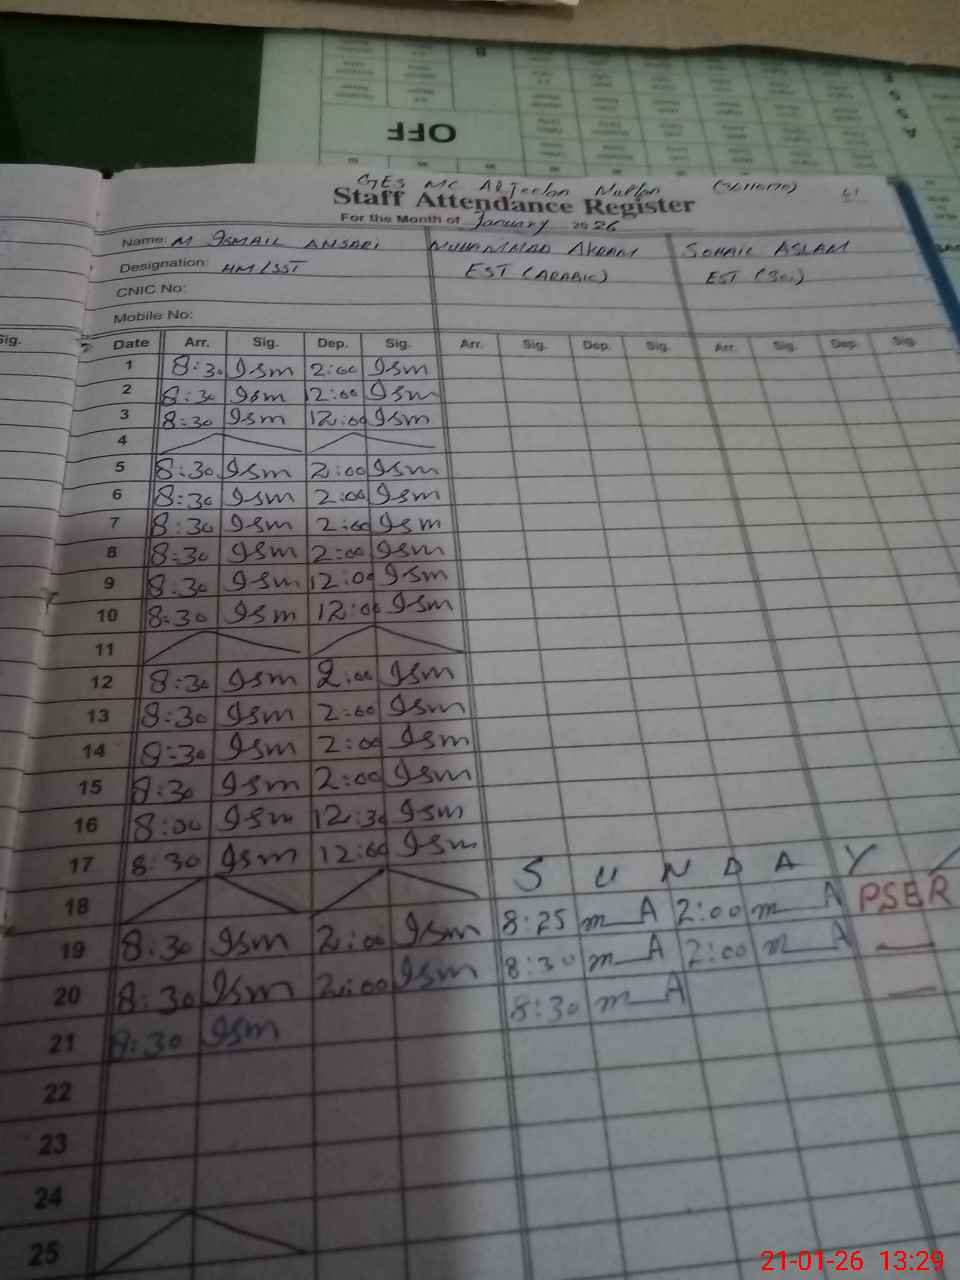 OFF
GES MC
Staff Attendance Register
For the Month of January 2026
Name: M ISMAIL ANSARI MUHAMMAD AKRAM SOHAIL ASLAM
Designation: HM/SST EST (ARABIC) EST (Sci)
CNIC No:
Mobile No:
Sig.
Date Arr. Sig. Dep. Sig. Arr. Sig. Dep. Sig. Arr. Sig. Dep. Sig.
1 8:30 Ism 2:00 Ism
2 8:30 Ism 12:00 Ism
3 8:30 Ism 12:00 Ism
4
5 8:30 Ism 2:00 Ism
6 8:30 Ism 2:00 Ism
7 8:30 Ism 2:00 Ism
8 8:30 Ism 2:00 Ism
9 8:30 Ism 12:00 Ism
10 8:30 Ism 12:00 Ism
11
12 8:30 Ism 2:00 Ism
13 8:30 Ism 2:00 Ism
14 8:30 Ism 2:00 Ism
15 8:30 Ism 2:00 Ism
16 8:00 Ism 12:30 Ism
17 8:30 Ism 12:00 Ism
18 S U N D A Y
19 8:30 Ism 2:00 Ism 8:25 m A 2:00 m A PSER
20 8:30 Ism 2:00 Ism 8:30 m A 2:00 m A
21 8:30 Ism 8:30 m A
22
23
24
25
21-01-26 13:29